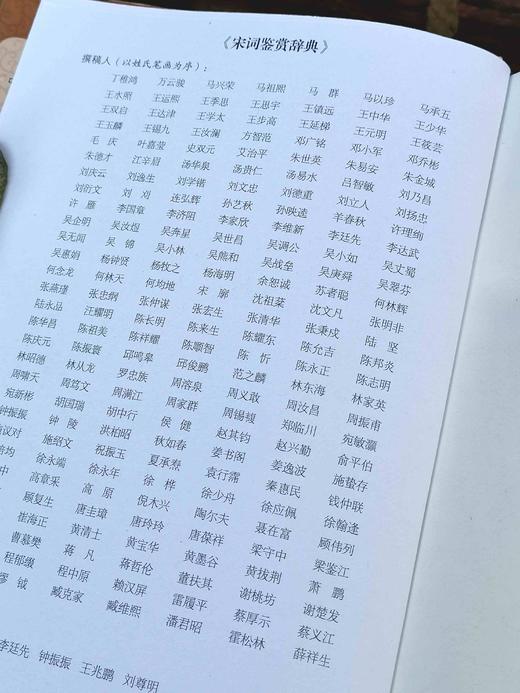 《宋词鉴赏辞典》
撰稿人（以姓氏笔画为序）：
丁稚鸿 万云骏 马兴荣 马祖熙 马 群 马以珍 马承五
王水照 王运熙 王季思 王思宇 王镇远 王中华 王少华
王双启 王达津 王学太 王步高 王延梯 王元明 王筱芸
王玉麟 王锡九 王汝澜 方智范 邓广铭 邓小军 邓乔彬
毛 庆 叶嘉莹 史双元 艾治平 朱世英 朱易安 朱金城
朱德才 江辛眉 汤华泉 汤贵仁 汤易水 吕智敏 刘乃昌
刘庆云 刘逸生 刘学锴 刘文忠 刘德重 刘立人 刘扬忠
刘衍文 刘 刈 连弘辉 孙艺秋 孙映逵 羊春秋 许理绚
许 雁 李国章 李济阻 李家欣 李维新 李廷先 李达武
吴企明 吴汝煜 吴奔星 吴世昌 吴调公 吴小如 吴丈蜀
吴无闻 吴 锦 吴小林 吴熊和 吴战垒 吴庚舜 吴翠芬
吴惠娟 杨钟贤 杨牧之 杨海明 余恕诚 苏者聪 何林辉
何念龙 何林天 何均地 宋 廓 沈祖棻 沈文凡 张明非
张燕瑾 张忠纲 张仲谋 张宏生 张清华 张秉戍 陆 坚
陆永品 汪耀明 陈长明 陈来生 陈耀东 陈允吉 陈邦炎
陈华昌 陈祖美 陈祥耀 陈顺智 陈 忻 陈永正 陈志明
陈庆元 陈振寰 邱鸣皋 邱俊鹏 范之麟 林东海 林家英
林昭德 林从龙 罗忠族 周溶泉 周义敢 周汝昌 周振甫
周啸天 周笃文 周满江 周家群 周锡 郑临川 宛敏灏
宛新彬 胡国瑞 胡中行 侯 健 赵其钧 赵兴勤 俞平伯
钟振振 钟 陵 洪柏昭 秋如春 姜书阁 姜逸波 施蛰存
施议对 施绍文 祝振玉 夏承焘 袁行霈 秦惠民 钱仲联
培均 徐永端 徐永年 徐 桦 徐少舟 徐应佩 徐翰逢
中 高章采 高 原 倪木兴 陶尔夫 聂在富 顾伟列
顾复生 唐圭璋 唐玲玲 唐葆祥 梁守中 梁鉴江
崔海正 黄清士 黄宝华 黄墨谷 黄拔荆 萧 鹏
曹慕樊 蒋 凡 蒋哲伦 董扶其 谢桃坊 谢楚发
程郁缀 程中原 赖汉屏 雷履平 蔡厚示 蔡义江
缪 钺 臧克家 臧维熙 潘君昭 霍松林 薛祥生
李廷先 钟振振 王兆鹏 刘尊明